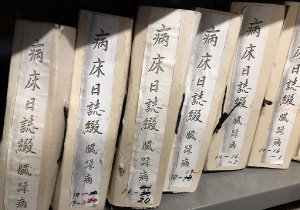 病床日誌綴 臓躁病
病床日誌綴 臓躁病
病床日誌綴 臓躁病
20
病床日誌綴 臓躁病
病床日誌綴 臓躁病
病床日誌綴 臓躁病